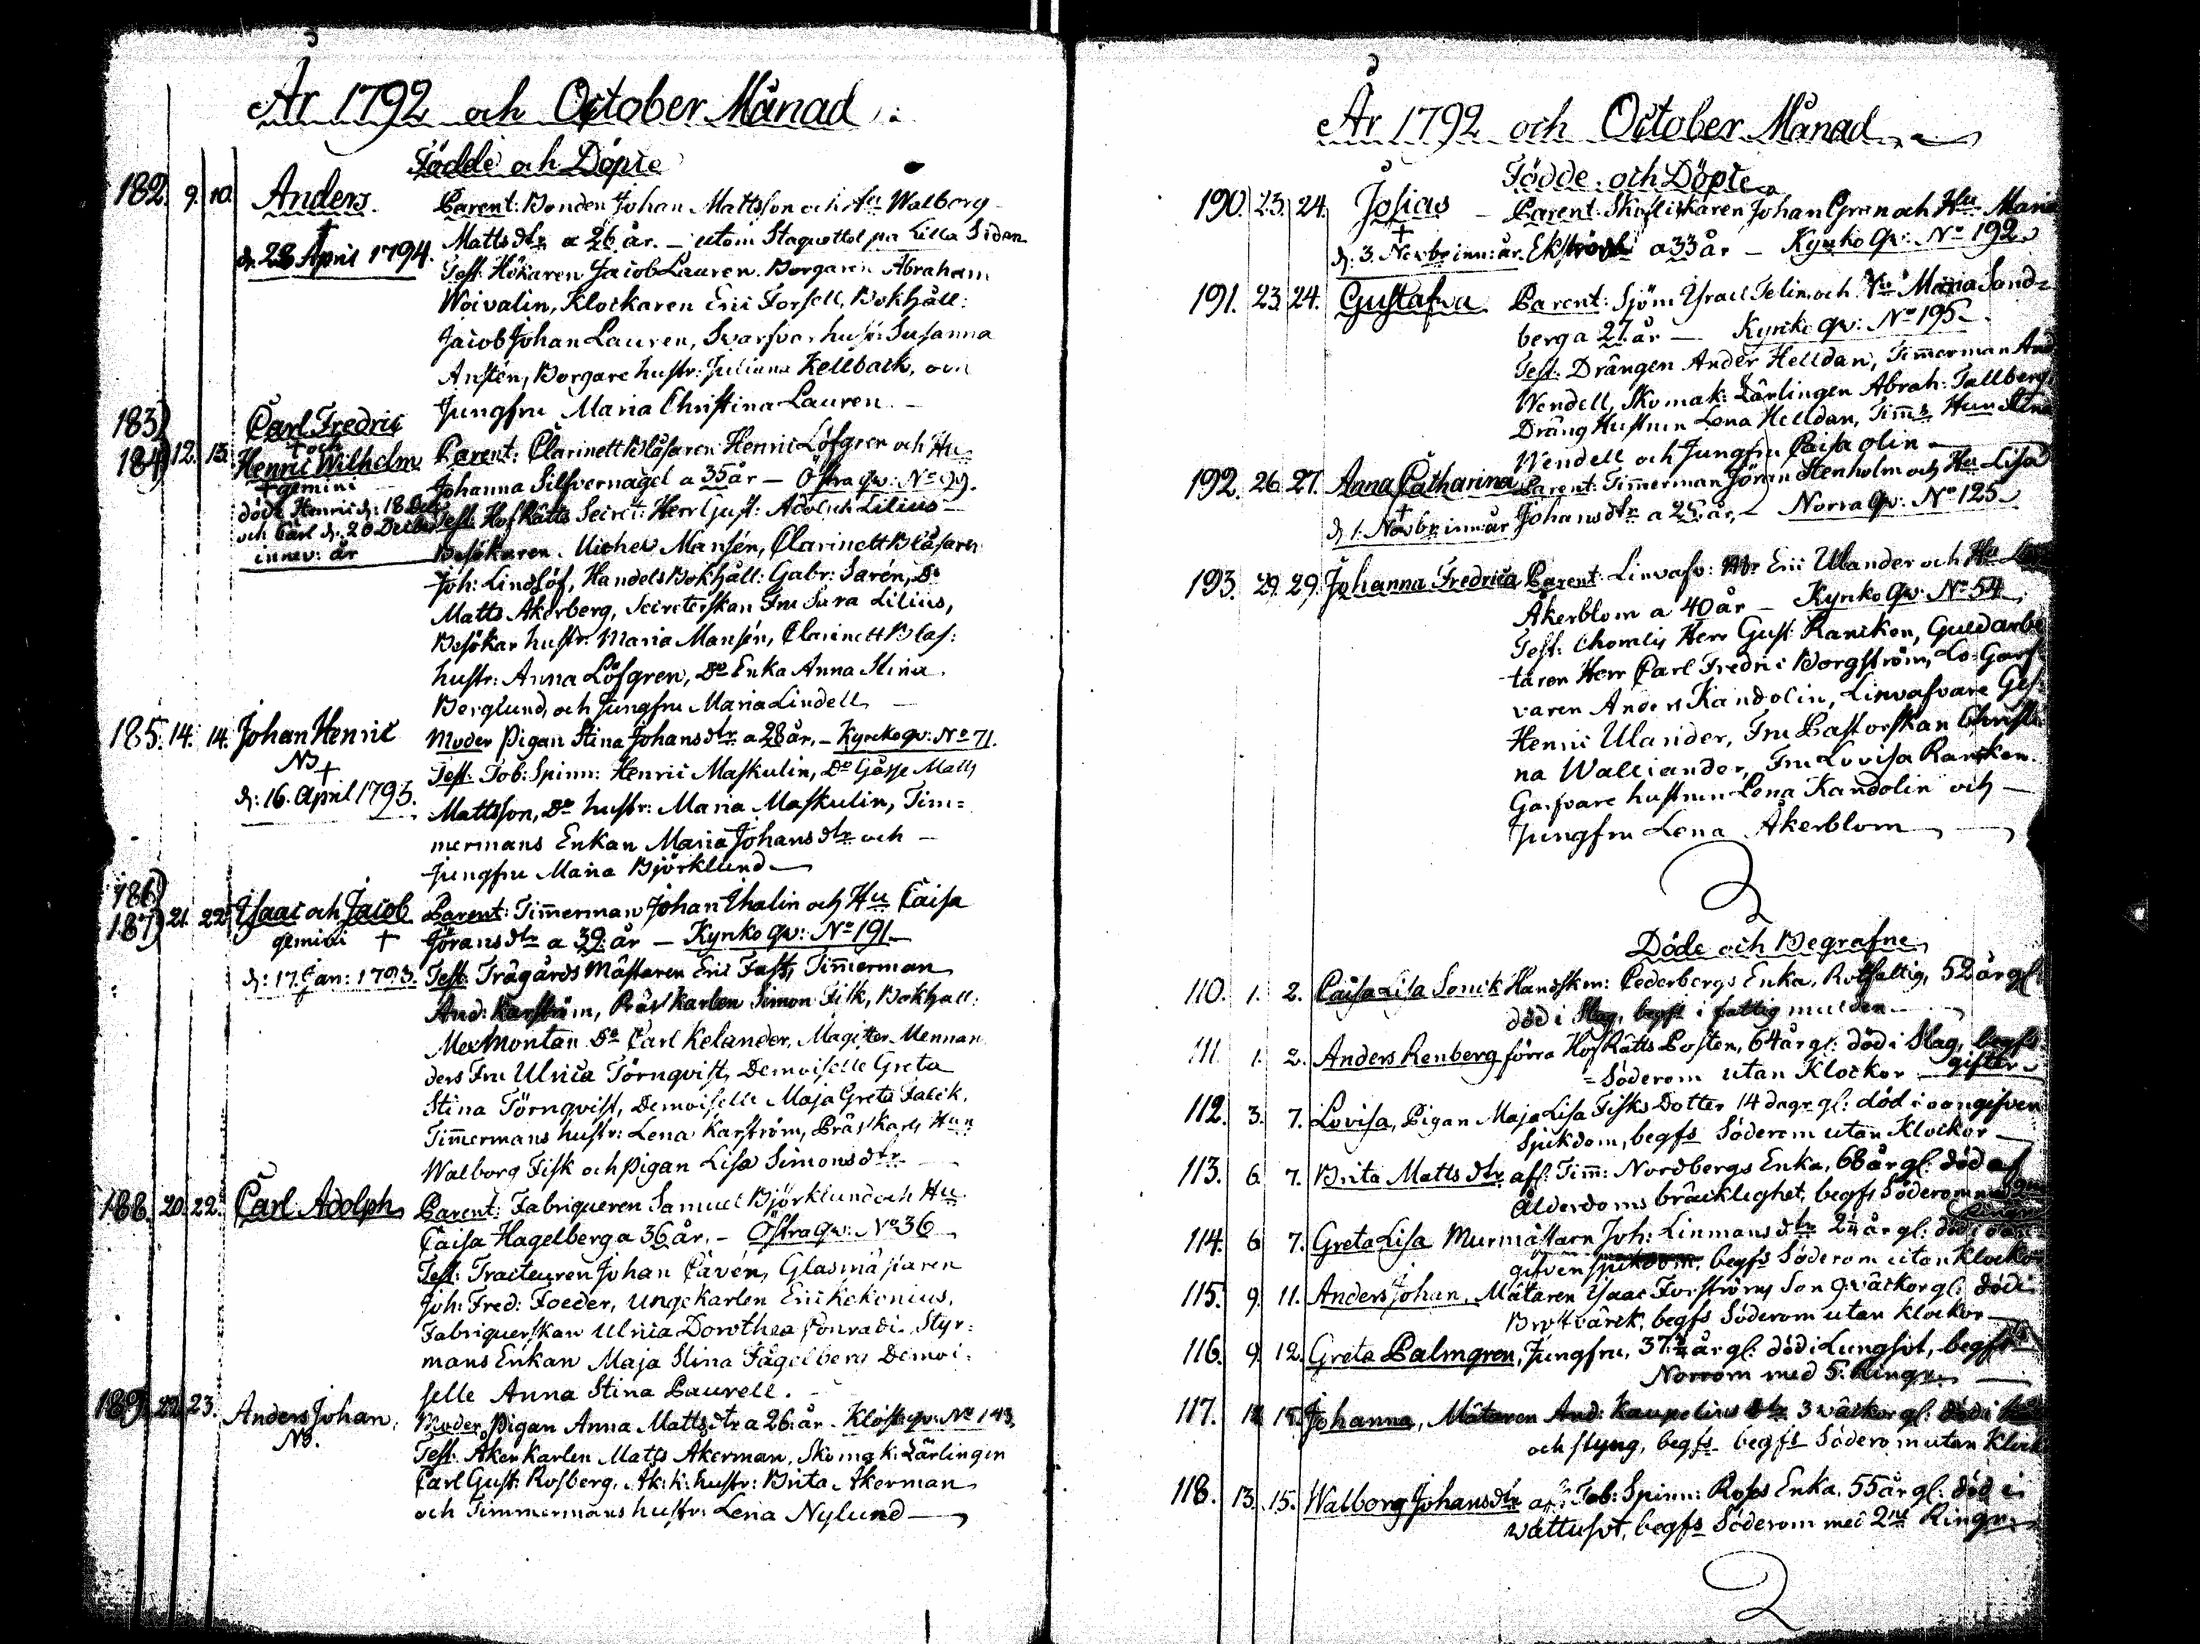 År 1792 och October Månad
Födde och Döpte
182. 9. 10. Anders. Parent: Bonden Johan Mattsson och Hu Walborg
Matts dtr a 26 år. — utom Staquettet på Lilla Sidan
d. 28 April 1794.
Test: Hökaren Jacob Lauren. Borgaren Abraham
Woivalin, Klockaren Eric Forsell, Bokhåll:
Jacob Johan Lauren, Svarfvar hustr: Susanna
Ansten, Borgare hustr: Juliana Kellback, och
Jungfru Maria Christina Lauren. —
183) Carl Fredric
och
184) 12. 13. Henric Wilhelm Parent: Clarinett Blåsaren Henric Löfgren och Hu
gemini
Johanna Silfvernagel a 35 år — Östra qv: No 99.
döde Henric d: 18 Dec
och Carl d. 20 December
innev: år
Test: HofRätts Secret: Herr Just: Adolph Lilius —
Besökaren Michel Mansén, Clarinett Blåsaren
Joh: Lindlöf, Handels Bokhåll: Gabr: Sarén, Do
Matts Åkerberg, Secreterskan Fru Sara Lilius,
Besökar hustr: Maria Mansén, Clarinett Blås:
hustr: Anna Löfgren, Do Enka Anna Stina
Berglund, och Jungfru Maria Lindell —
185. 14. 14. Johan Henric Moder Pigan Stina Johans dtr a 28 år. — Kyrcko qv: No 71.
NB
d: 16. April 1793.
Test: Tob: Spinn: Henric Maskulin, Do Gosse Matts
Mattsson, Do hustr: Maria Maskulin, Tim=
mermans Enkan Maria Johans dtr och —
Jungfru Maria Björklund —
186)
187) 21. 22. Isaac och Jacob Parent: Timmerman Johan Thalin och Hu Caisa
gemini
Jörans dtr a 39 år — Kyrko qv: No 191 —
d: 17. Jan: 1793.
Test: Trägårds Mästaren Eric Fast, Timmerman
And: Karström, Präst karlen Simon Fisk, Bokhåll:
Alex Montan Do Carl Kelander, Magister Mennan
ders Fru Ulrica Törnqvist, Demoiselle Greta
Stina Törnqvist, Demoiselle Maja Greta Falck,
Timmermans hustr: Lena Karström, Präst karls Hun
Walborg Fisk och Pigan Lisa Simons dtr
188. 20. 22. Carl Adolph Parent: Fabriqueren Samuel Björklund och Hu
Caisa Hagelberg a 36 år. — Östra qv: No 36 —
Test: Tracteuren Johan Cavén, Glasmästaren
Joh: Fred: Foeder, Ungekarlen Eric Kekonius,
Fabriquerskan Ulrica Dorothea Conradi. Styr:
mans Enkan Maja Stina Fågelberg Demoi:
selle Anna Stina Laurell.
189. 22. 23. Anders Johan. Moder Pigan Anna Matts dtr a 26 år. Klost: qv: No 143.
NB.
Test: Åker karlen Matts Åkerman, Skomak: Lärlingen
Carl Gust: Rosberg, Åk: k: hustr: Brita Åkerman
och Timmermans hustr: Lena Nylund —
År 1792 och October Månad
Födde och Döpte
190. 23. 24. Josias — Parent: Johan Gran och Hu Maria
d: 3. Novbr inn: år. a 33 år — Kyrko qv: No 192
191. 23. 24. Gustafva Parent: Sjöm: Israel Telin och Hu Maria Sand=
berg a 27 år — Kyrko qv: No 195 —
Test: Drängen Ander Helldan, Timmerman And
Wendell, Skomak: Lärlingen Abrah: Tallberg,
Dräng Hustrun Lena Helldan, Timms Hun Stina
Wendell och Jungfru Caisa Olin —
192. 26. 27. Anna Catharina Parent: Timmerman Jöran Stenholm och Hu Lisa
d. 1. Novbr inn: år Johans dtr a 25 år, — Norra qv: No 125.
193. 29. 29. Johanna Fredrica Parent: Linväfv: Mr Eric Ulander och Hu
Åkerblom a 40 år — Kyrko qv: No 54
Test: Herr Gust: Rancken, Guldarbe
taren Herr Carl Fredric Borgström, Lo: Garf
varen Anders Kandolin, Linväfvare Ges:
Henric Ulander, Fru Pastorskan Christi
na Walliander, Fru Lovisa Rancken.
Garfvare hustrun Lena Kandolin och —
Jungfru Lena Åkerblom —
Döde och Begrafne
110. 1. 2. Caisa Lisa Sonck Handskm: Cederbergs Enka, Rotfattig, 52 år gl:
död i Slag, begfs i fattig mullden —
111. 1. 2. Anders Renberg förra HofRätts Posten, 64 år gl: död i Slag, begfs
Söderom utan Klockor — gifter
112. 3. 7. Lovisa, Pigan Maja Lisa Fisks Dotter 14 dagr gl: död i oangifven
Sjukdom, begfs Söderom utan Klockor —
113. 6. 7. Brita Matts dtr afl: Timm: Nordbergs Enka, 68 år gl: död af
Ålderdoms bräcklighet, begfs Söderom
114. 6. 7. Greta Lisa Murmästarn Joh: Linmans dtr 2¼ år gl: död i oan
gifven sjukdom, begfs Söderom utan Klockor
115. 9. 11. Anders Johan, Mätaren Isaac Forströms Son 9 wäckor gl: död i
Bröstvärck, begfs Söderom utan klockor —
116. 9. 12. Greta Palmgren, Jungfru, 37¾ år gl: död i Lungsot, begfs
Norrom med 5. Ringr —
117. 12. 15. Johanna, Mätaren And: Kaupelius dtr 3 wäckor gl: död i
och styng, begfs begfs Söderom utan Klock
118. 13. 15. Walborg Johans dtr afl: Tob: Spinn: Ross Enka, 55 år gl: död i
wattusot, begfs Söderom med 2ne Ringr